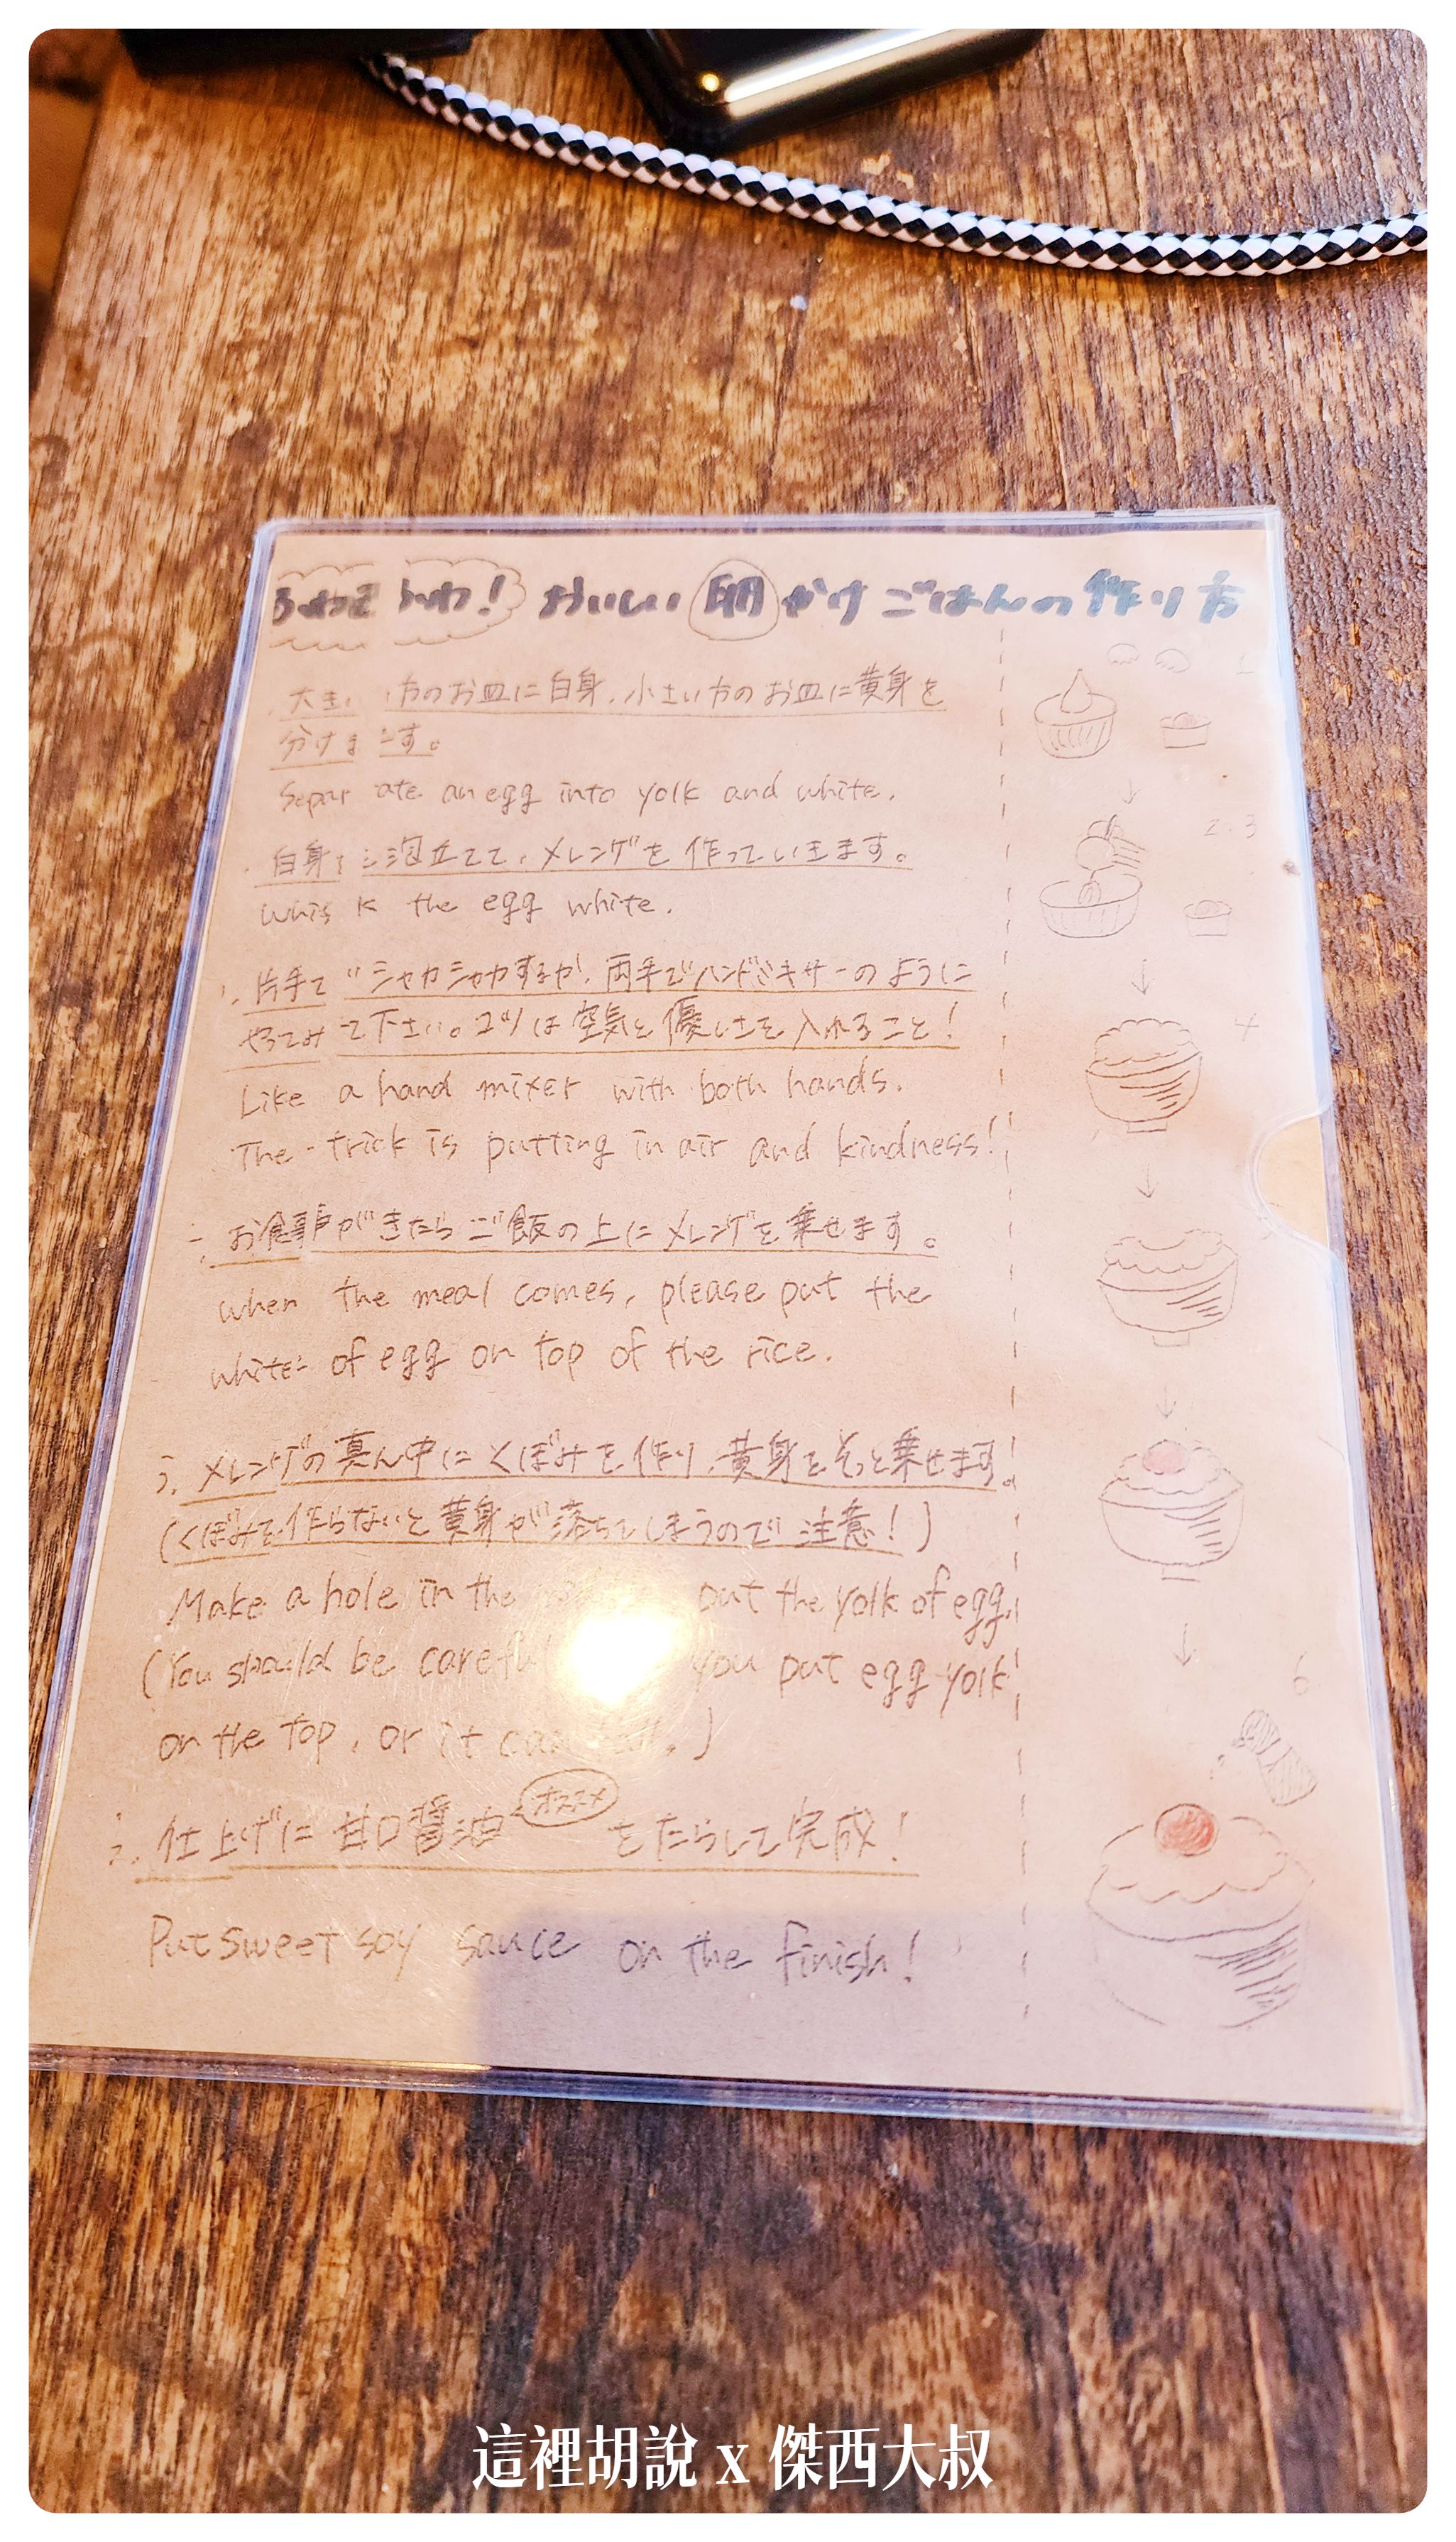 ふわふわ! おいしい卵かけごはんの作り方
大きい方のお皿に白身、小さい方のお皿に黄身を
分けます。
Separ ate an egg into yolk and white.
白身を泡立てて、メレンゲを作っていきます。
Whis k the egg white.
片手で シャカシャカするか、両手でハンドミキサーのように
やってみて下さい。コツは空気と優しさを入れること!
Like a hand mixer with both hands.
The trick is putting in air and kindness!
お食事がきたらご飯の上にメレンゲを乗せます。
when the meal comes, please put the
white of egg on top of the rice.
メレンゲの真ん中にくぼみを作り、黄身をそっと乗せます。
(くぼみを作らないと黄身が落ちてしまうので注意!)
Make a hole in the put the yolk of egg.
(You should be careful you put egg yolk
on the top, or it can )
仕上げに甘口醤油 オススメ をたらして完成!
Put sweet soy sauce on the finish!
1
2.3
4
6
這裡胡說 x 傑西大叔